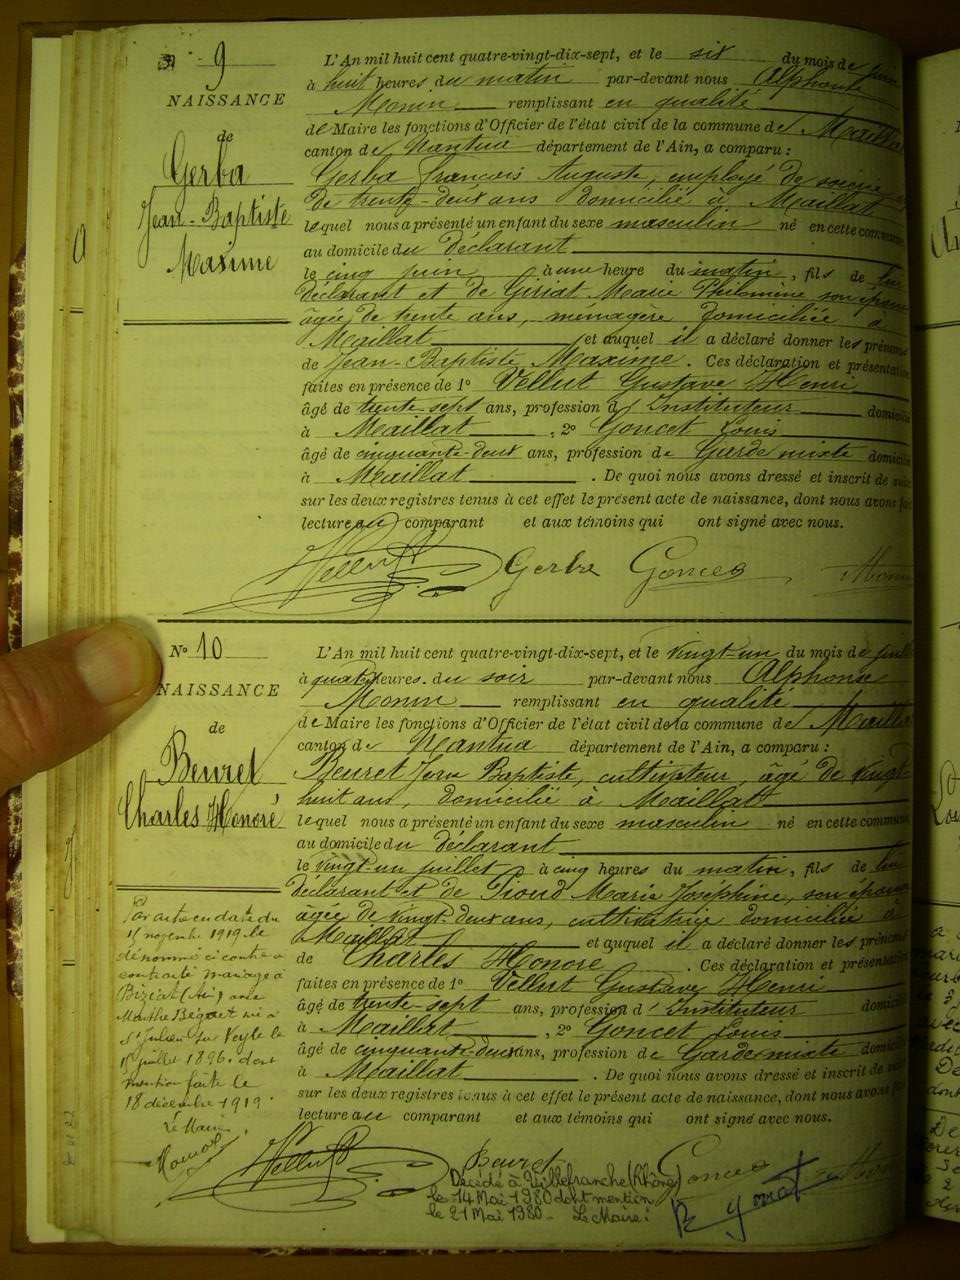 9
NAISSANCE
de
Gerba
Jean-Baptiste
Maxime
L'An mil huit cent quatre-vingt-dix-sept, et le six du mois de juin
à huit heures du matin par-devant nous Alphonse
Monin remplissant en qualité
de Maire les fonctions d'Officier de l'état civil de la commune de Maillat
canton de Nantua département de l'Ain, a comparu :
Gerba François Auguste, employé de
de trente-deux ans domicilié à Maillat
lequel nous a présenté un enfant du sexe masculin né en cette commune
au domicile du déclarant
le cinq juin à une heure du matin, fils de lui
déclarant et de Giriat Marie Philomène son épouse
âgée de trente ans, ménagère domiciliée à
Maillat et auquel il a déclaré donner les prénoms
de Jean-Baptiste Maxime. Ces déclaration et présentation
faites en présence de 1º Vellut Gustave Henri
âgé de trente sept ans, profession d'Instituteur domicilié
à Maillat, 2º Goncet Louis
âgé de cinquante-deux ans, profession de Garde mixte domicilié
à Maillat. De quoi nous avons dressé et inscrit de suite
sur les deux registres tenus à cet effet le présent acte de naissance, dont nous avons fait
lecture au comparant et aux témoins qui ont signé avec nous.
Vellut Gerba Goncet Monin
Nº 10
NAISSANCE
de
Beuret
Charles Honoré
L'An mil huit cent quatre-vingt-dix-sept, et le vingt-un du mois de juillet
à quatre heures du soir par-devant nous Alphonse
Monin remplissant en qualité
de Maire les fonctions d'Officier de l'état civil de la commune de Maillat
canton de Nantua département de l'Ain, a comparu :
Beuret Jean Baptiste, cultivateur, âgé de vingt-
huit ans, domicilié à Maillat
lequel nous a présenté un enfant du sexe masculin né en cette commune
au domicile du déclarant
le vingt un juillet à cinq heures du matin, fils de lui
déclarant et de Pioud Marie Joséphine, son épouse
âgée de vingt-deux ans, cultivatrice domiciliée à
Maillat et auquel il a déclaré donner les prénoms
de Charles Honoré. Ces déclaration et présentation
faites en présence de 1º Vellut Gustave Henri
âgé de trente-sept ans, profession d'Instituteur domicilié
à Maillat, 2º Goncet Louis
âgé de cinquante-deux ans, profession de Garde mixte domicilié
à Maillat. De quoi nous avons dressé et inscrit de suite
sur les deux registres tenus à cet effet le présent acte de naissance, dont nous avons fait
lecture au comparant et aux témoins qui ont signé avec nous.
Par acte en date du
15 novembre 1919. le
dénommé ci contre a
contracté mariage à
Biziat (Ain) avec
Marthe Béguet née à
St Julien sur Veyle le
15 juillet 1896. dont
mention faite le
18 décembre 1919.
Le Maire,
Vellut Beuret Goncet
Décédé à Villefranche (Rhône)
le 14 Mai 1980 dont mention
le 21 Mai 1980 Le Maire :